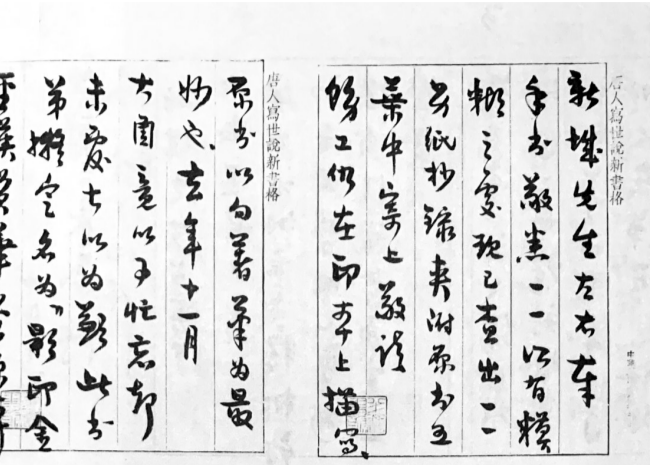 唐人寫世說新書格
新城先生左右奉
手书敬悉一一所有模
糊之處现已查出一一
另纸抄録夹附原书五
葉中寄上敬請
饬工仍在印本上描寫、
唐人寫世說新書格
原书以勿著筆为最
妙也、去年十一月
大圅竟以事忙忘却
未覆甚以为歉此书
弟擬定名为"影印金